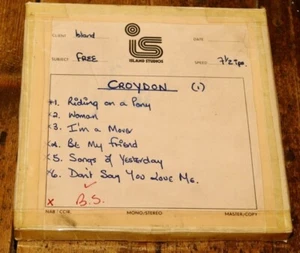 CLIENT Island DATE
iS
ISLAND STUDIOS
SUBJECT FREE SPEED 7½ ips.
CROYDON (1)
x1. Riding on a Pony
x2. Woman
x3. I'm a Mover
x4. Be My Friend
x5. Songs of Yesterday
x6. Don't Say You Love Me.
x B.S.
NAB / CCIR. MONO/STEREO MASTER/COPY